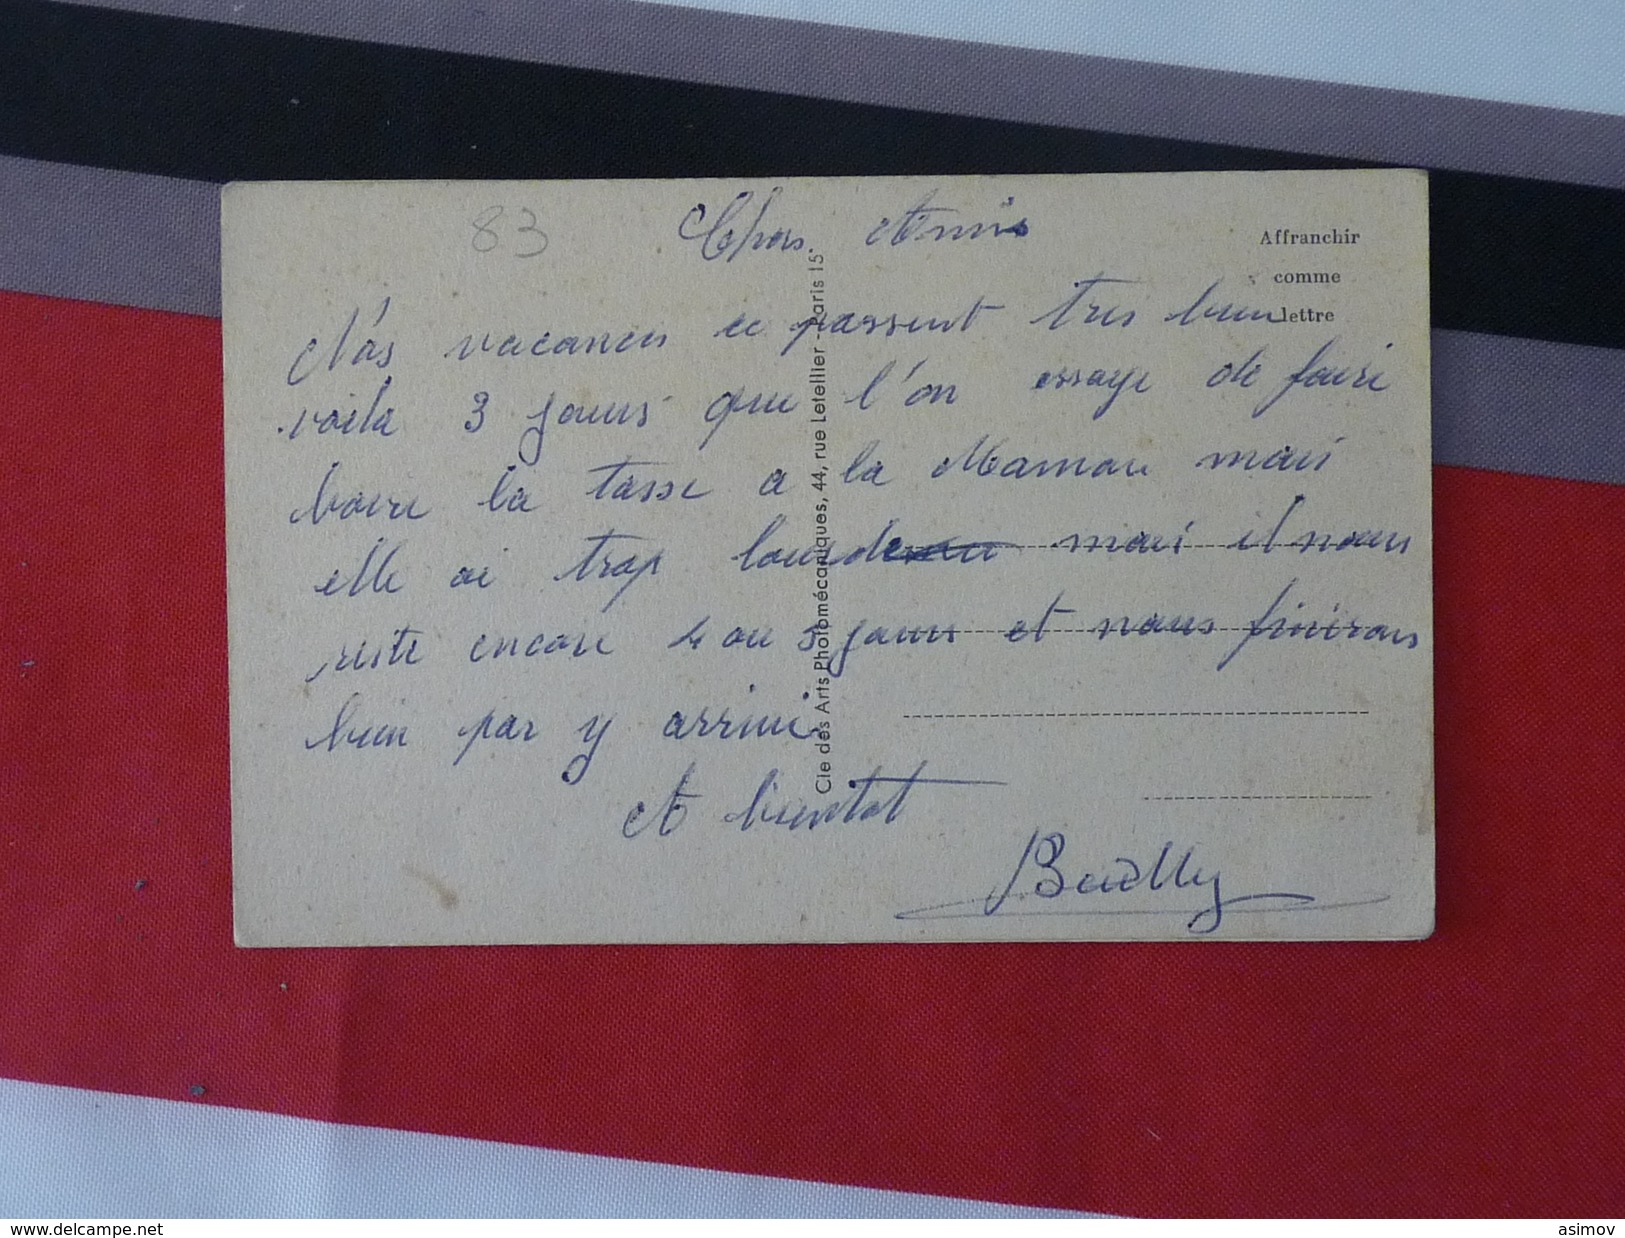 83
Chers Amis
Affranchir
comme
lettre
Nos vacances ce passent tres bien
voila 3 jours que l'on essaye de faire
boire la tasse a la Maman mais
elle ai trop lourde mais il nous
reste encore 4 ou 5 jours et nous finirons
bien par y arriver
A bientot
Cie des Arts Photomécaniques, 44, rue Letellier - Paris 15°
www.delcampe.net
asimov